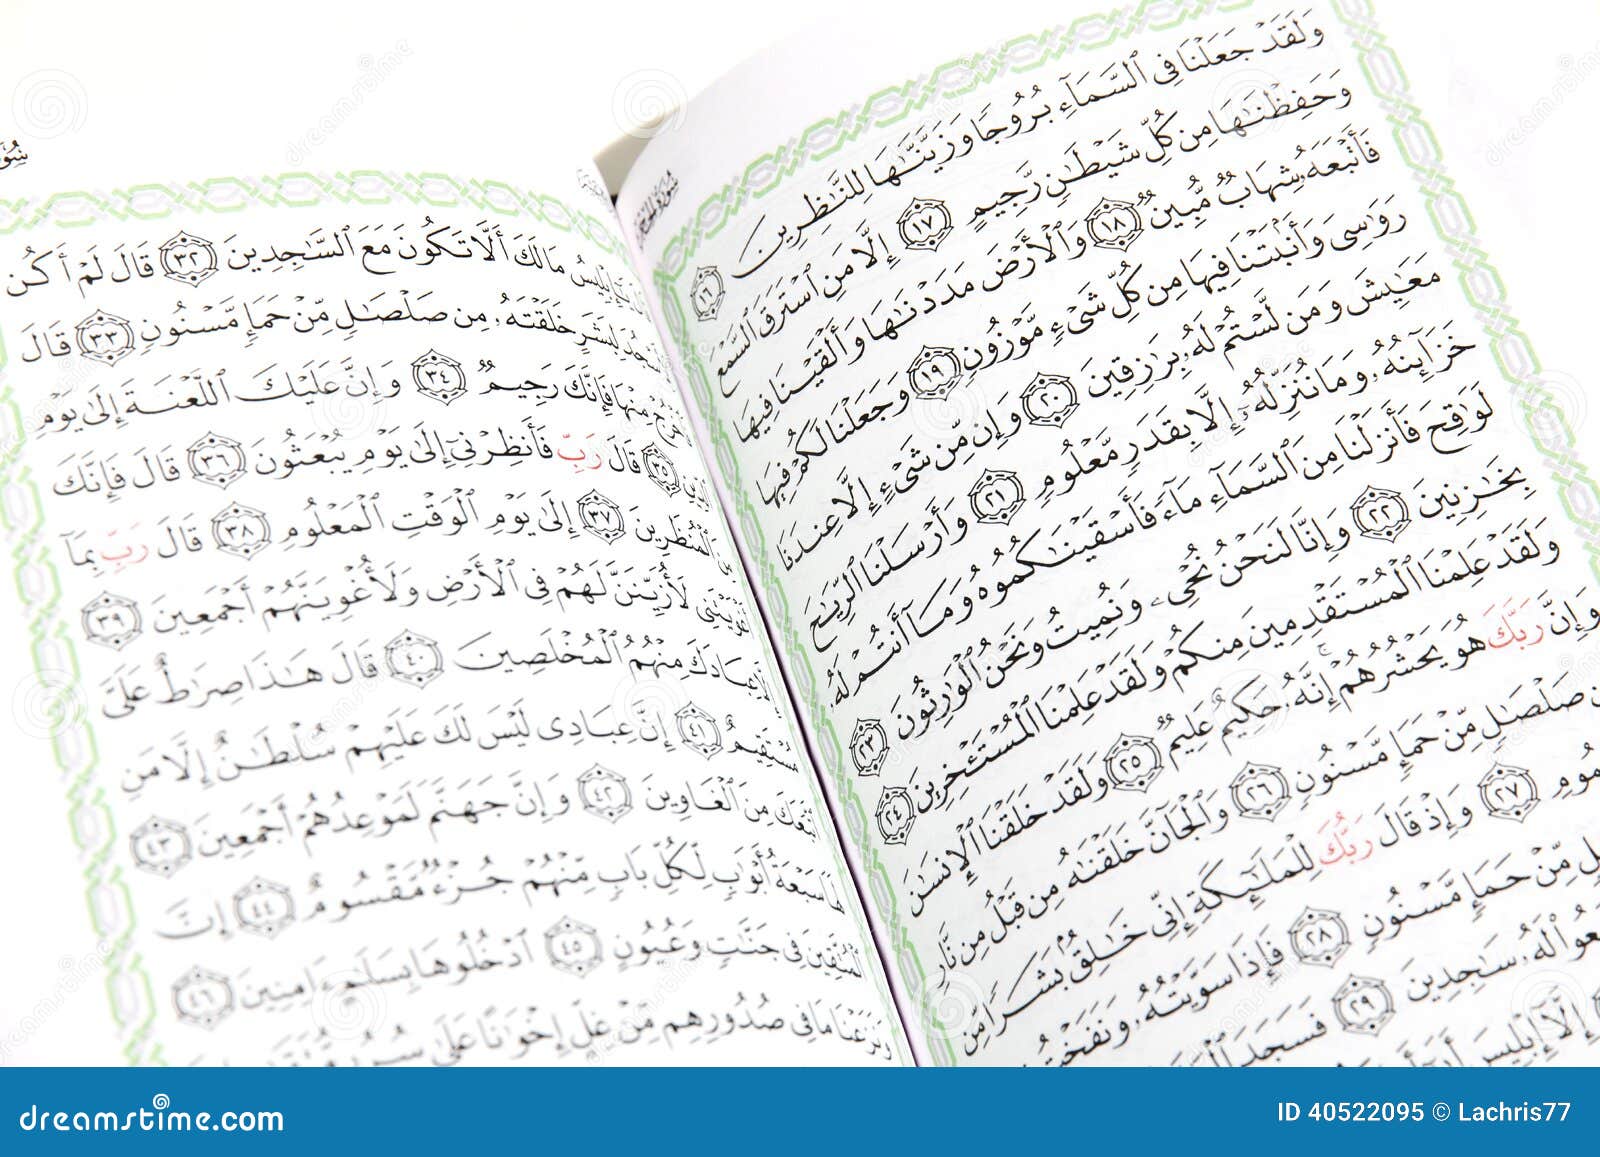 سُورَةُ الحِجْر
وَلَقَدْ جَعَلْنَا فِي ٱلسَّمَآءِ بُرُوجًا وَزَيَّنَّٰهَا لِلنَّٰظِرِينَ ١٦
وَحَفِظْنَٰهَا مِن كُلِّ شَيْطَٰنٍ رَّجِيمٍ ١٧ إِلَّا مَنِ ٱسْتَرَقَ ٱلسَّمْعَ
فَأَتْبَعَهُۥ شِهَابٌ مُّبِينٌ ١٨ وَٱلْأَرْضَ مَدَدْنَٰهَا وَأَلْقَيْنَا فِيهَا
رَوَٰسِيَ وَأَنۢبَتْنَا فِيهَا مِن كُلِّ شَيْءٍ مَّوْزُونٍ ١٩ وَجَعَلْنَا لَكُمْ فِيهَا
مَعَٰيِشَ وَمَن لَّسْتُمْ لَهُۥ بِرَٰزِقِينَ ٢٠ وَإِن مِّن شَيْءٍ إِلَّا عِندَنَا
خَزَآئِنُهُۥ وَمَا نُنَزِّلُهُۥٓ إِلَّا بِقَدَرٍ مَّعْلُومٍ ٢١ وَأَرْسَلْنَا ٱلرِّيَٰحَ
لَوَٰقِحَ فَأَنزَلْنَا مِنَ ٱلسَّمَآءِ مَآءً فَأَسْقَيْنَٰكُمُوهُ وَمَآ أَنتُمْ لَهُۥ
بِخَٰزِنِينَ ٢٢ وَإِنَّا لَنَحْنُ نُحْيِۦ وَنُمِيتُ وَنَحْنُ ٱلْوَٰرِثُونَ ٢٣
وَلَقَدْ عَلِمْنَا ٱلْمُسْتَقْدِمِينَ مِنكُمْ وَلَقَدْ عَلِمْنَا ٱلْمُسْتَـْٔخِرِينَ ٢٤
وَإِنَّ رَبَّكَ هُوَ يَحْشُرُهُمْ إِنَّهُۥ حَكِيمٌ عَلِيمٌ ٢٥ وَلَقَدْ خَلَقْنَا ٱلْإِنسَٰنَ
صَلْصَٰلٍ مِّنْ حَمَإٍ مَّسْنُونٍ ٢٦ وَٱلْجَآنَّ خَلَقْنَٰهُ مِن قَبْلُ مِن نَّارِ
٢٧ وَإِذْ قَالَ رَبُّكَ لِلْمَلَٰٓئِكَةِ إِنِّي خَٰلِقٌۢ بَشَرًا مِّن
مِّنْ حَمَإٍ مَّسْنُونٍ ٢٨ فَإِذَا سَوَّيْتُهُۥ وَنَفَخْتُ
لَهُۥ سَٰجِدِينَ ٢٩ فَسَجَدَ
إِلَّآ إِبْلِيسَ
يَٰٓإِبْلِيسُ مَا لَكَ أَلَّا تَكُونَ مَعَ ٱلسَّٰجِدِينَ ٣٢ قَالَ لَمْ أَكُن
لِبَشَرٍ خَلَقْتَهُۥ مِن صَلْصَٰلٍ مِّنْ حَمَإٍ مَّسْنُونٍ ٣٣ قَالَ
مِنْهَا فَإِنَّكَ رَجِيمٌ ٣٤ وَإِنَّ عَلَيْكَ ٱللَّعْنَةَ إِلَىٰ يَوْمِ
ٱلدِّينِ ٣٥ قَالَ رَبِّ فَأَنظِرْنِيٓ إِلَىٰ يَوْمِ يُبْعَثُونَ ٣٦ قَالَ فَإِنَّكَ
ٱلْمُنظَرِينَ ٣٧ إِلَىٰ يَوْمِ ٱلْوَقْتِ ٱلْمَعْلُومِ ٣٨ قَالَ رَبِّ بِمَآ
أَغْوَيْتَنِي لَأُزَيِّنَنَّ لَهُمْ فِي ٱلْأَرْضِ وَلَأُغْوِيَنَّهُمْ أَجْمَعِينَ ٣٩
عِبَادَكَ مِنْهُمُ ٱلْمُخْلَصِينَ ٤٠ قَالَ هَٰذَا صِرَٰطٌ عَلَيَّ
مُسْتَقِيمٌ ٤١ إِنَّ عِبَادِي لَيْسَ لَكَ عَلَيْهِمْ سُلْطَٰنٌ إِلَّا مَنِ
ٱتَّبَعَكَ مِنَ ٱلْغَاوِينَ ٤٢ وَإِنَّ جَهَنَّمَ لَمَوْعِدُهُمْ أَجْمَعِينَ ٤٣
سَبْعَةُ أَبْوَٰبٍ لِّكُلِّ بَابٍ مِّنْهُمْ جُزْءٌ مَّقْسُومٌ ٤٤ إِنَّ
ٱلْمُتَّقِينَ فِي جَنَّٰتٍ وَعُيُونٍ ٤٥ ٱدْخُلُوهَا بِسَلَٰمٍ ءَامِنِينَ ٤٦
وَنَزَعْنَا مَا فِي صُدُورِهِم مِّنْ غِلٍّ إِخْوَٰنًا عَلَىٰ سُرُرٍ
dreamstime.com
ID 40522095 © Lachris77